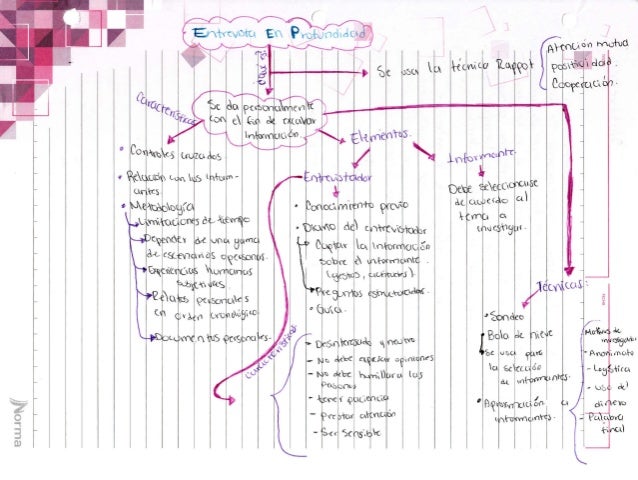 Entrevista En Profundidad
Se usa la técnica Rappot
Atención mutua
positividad
Cooperación
Características
Se da personalmente
con el fin de
Información
Elementos
Controles cruzados
Relación con los inform-
antes
Metodología
Limitaciones de tiempo
Depender de una gama
de escenarios o personas.
Experiencias humanas
subjetivas
Relatos personales
en orden cronológico
Documentos personales.
Entrevistador
Conocimiento previo
Diario del entrevistador
Captar la Información
sobre el informante
(gestos,
Preguntas estructuradas.
Guía.
Características
- Desinteresado y neutro
- No debe expresar opiniones
- No debe humillar a las
personas
- tener paciencia
- prestar atención
- Ser Sensible
Informante.
Debe Seleccionarse
de acuerdo al
tema a
investigar.
Técnicas:
Sondeo
Bola de nieve
Se usa para
la selección
de informantes.
Aproximación a
informantes.
Motivos de
investigador
- Anonimato
- Logística
- uso del
dinero
- Palabra
final
Norma